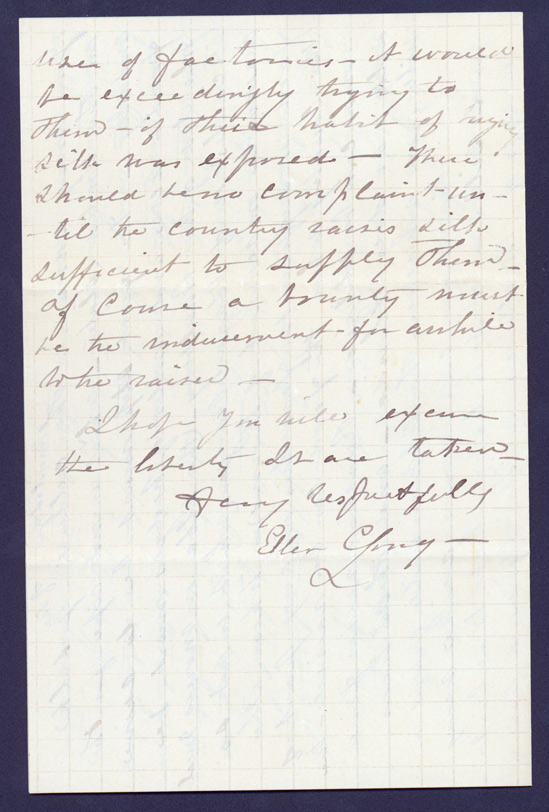 of factories – it would
be exceedingly trying to
them – if their habit of
silk was exposed – There
should be no complaint un-
- til the country raises silk
sufficient to supply them –
of course a bounty must
be the inducement – for awhile
to be raised –
I hope you will excuse
the liberty I have taken –
Very respectfully
Ellen C Long –